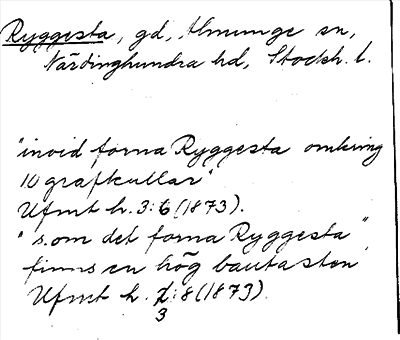 Ryggesta, gd, Almunge sn,
Närdinghundra hd, Stockh. l.
"invid forna Ryggesta omkring
10 grafkullar"
Ufmt h. 3:6 (1873).
"s.om det forna Ryggesta"
finns en hög bautasten
Ufmt h. 3:8 (1873).